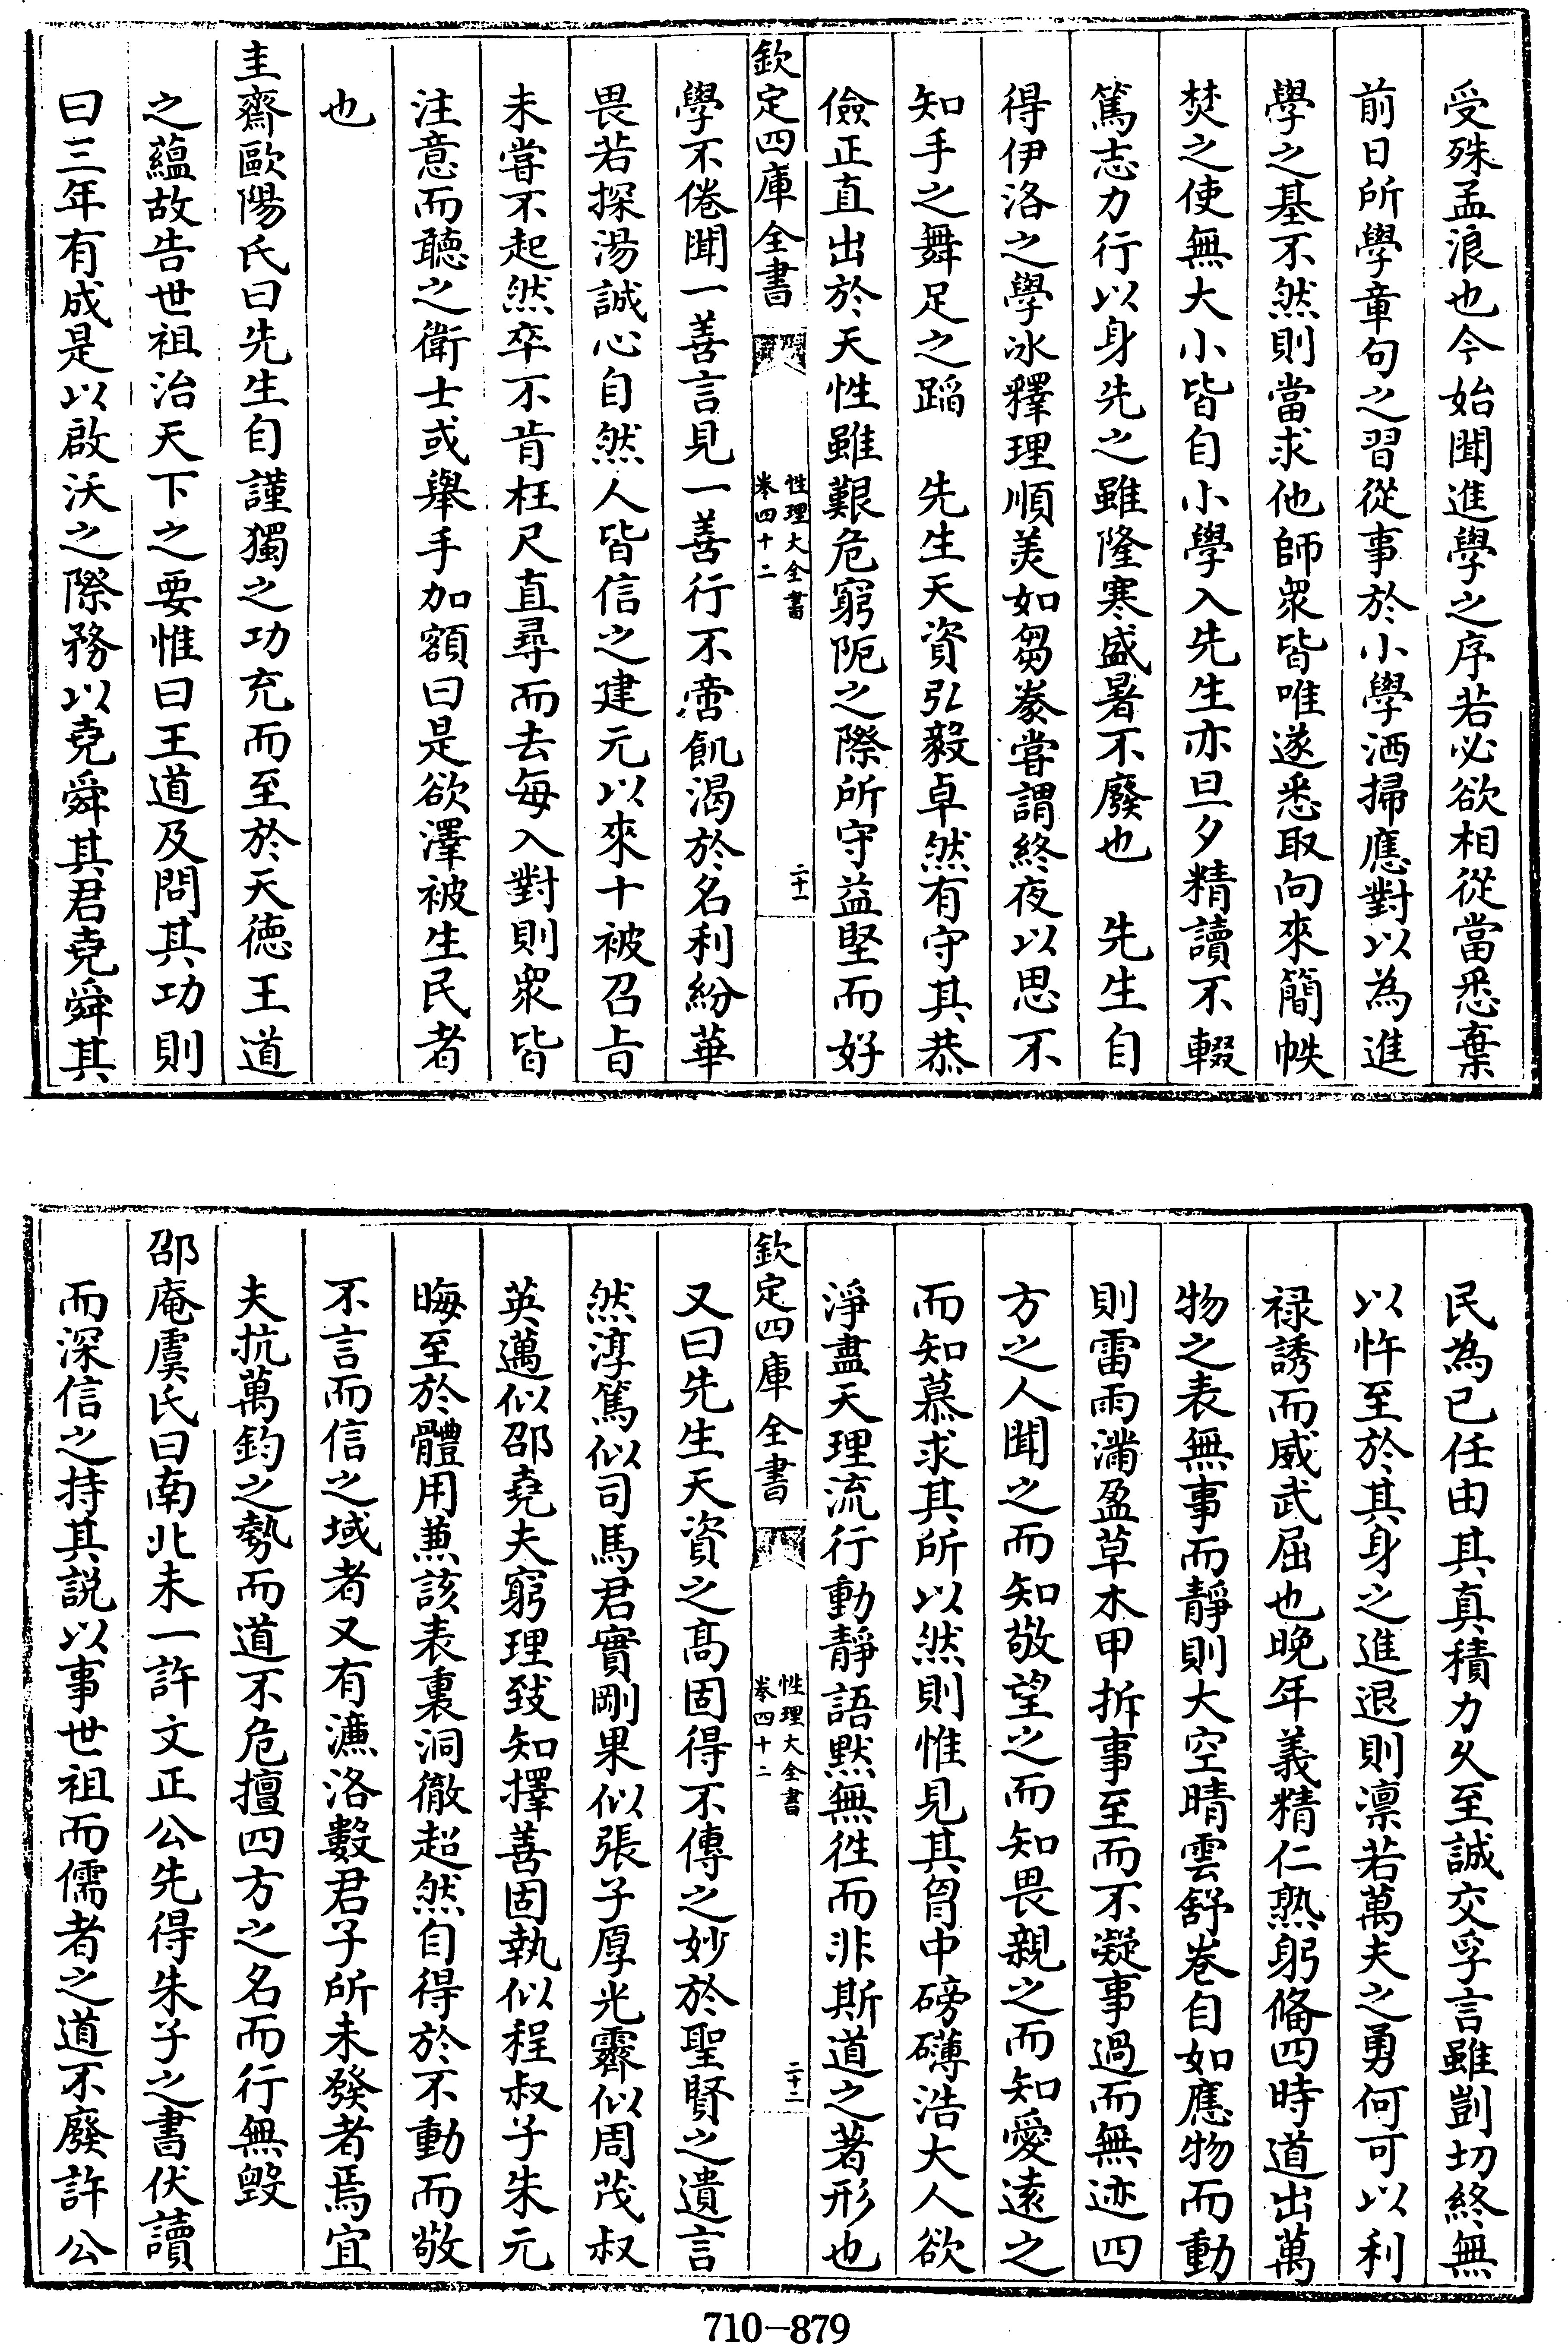 受殊孟浪也今始聞進學之序若必欲相從當悉棄
前日所學章句之習從事於小學洒掃應對以為進
學之基不然則當求他師衆皆唯遂悉取向來簡帙
焚之使無大小皆自小學入先生亦旦夕精讀不輟
篤志力行以身先之雖隆寒盛暑不廢也　先生自
得伊洛之學冰釋理順美如芻豢嘗謂終夜以思不
知手之舞足之蹈　先生天資弘毅卓然有守其恭
儉正直出於天性雖艱危窮阨之際所守益堅而好
欽定四庫全書
性理大全書
卷四十二
二十一
學不倦聞一善言見一善行不啻飢渴於名利紛華
畏若探湯誠心自然人皆信之建元以來十被召㫖
未嘗不起然卒不肯枉尺直尋而去每入對則衆皆
注意而聽之衛士或舉手加額曰是欲澤被生民者
也
圭齋歐陽氏曰先生自謹獨之功充而至於天徳王道
之蘊故告世祖治天下之要惟曰王道及問其功則
曰三年有成是以啟沃之際務以堯舜其君堯舜其
民為已任由其真積力久至誠交孚言雖剴切終無
以忤至於其身之進退則凛若萬夫之勇何可以利
禄誘而威武屈也晚年義精仁熟躬備四時道出萬
物之表無事而靜則大空晴雲舒卷自如應物而動
則雷雨滿盈草木甲拆事至而不凝事過而無迹四
方之人聞之而知敬望之而知畏親之而知愛逺之
而知慕求其所以然則惟見其胷中磅礴浩大人欲
淨盡天理流行動靜語黙無徃而非斯道之著形也
欽定四庫全書
性理大全書
卷四十二
二十二
又曰先生天資之髙固得不傳之妙於聖賢之遺言
然淳篤似司馬君實剛果似張子厚光霽似周茂叔
英邁似邵堯夫窮理致知擇善固執似程叔子朱元
晦至於體用兼該表裏洞徹超然自得於不動而敬
不言而信之域者又有濂洛數君子所未發者焉宜
夫抗萬鈞之勢而道不危擅四方之名而行無毀
邵庵虞氏曰南北未一許文正公先得朱子之書伏讀
而深信之持其説以事世祖而儒者之道不廢許公
710-879